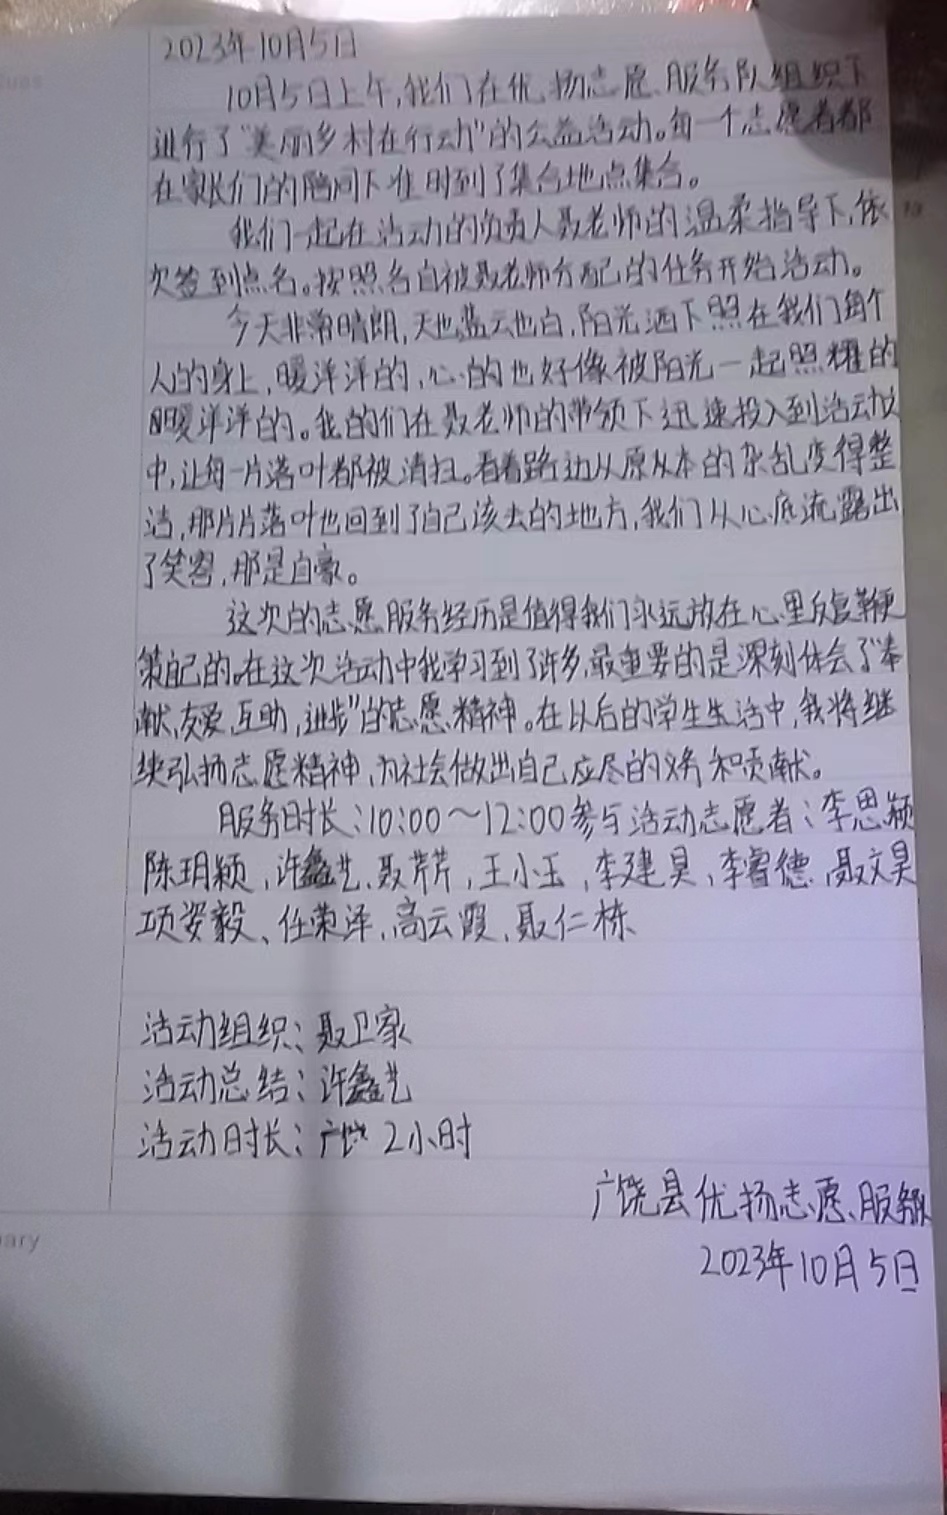 2023年10月5日
10月5日上午,我们在优扬志愿服务队组织下
进行了"美丽乡村在行动"的公益活动。每一个志愿者都
在家长们的陪同下准时到了集合地点集合。
我们一起在活动的负责人聂老师的温柔指导下,依
次签到点名。按照各自被聂老师分配的任务开始活动。
今天非常晴朗,天也蓝云也白,阳光洒下照在我们每个
人的身上,暖洋洋的,心的也好像被阳光一起照耀的
暖洋洋的。我的们在聂老师的带领下迅速投入到活动
中,让每一片落叶都被清扫。看着路边从原从本的杂乱变得整
洁,那片片落叶也回到了自己该去的地方,我们从心底流露出
了笑容,那是自豪。
这次的志愿服务经历是值得我们永远放在心里反复鞭
策自己的。在这次活动中我学习到了许多,最重要的是深刻体会了"奉
献,友爱,互助,进步"的志愿精神。在以后的学生生活中,我将继
续弘扬志愿精神,为社会做出自己应尽的义务和贡献。
服务时长:10:00～12:00参与活动志愿者:李思颖
陈玥颖,许鑫艺,聂芹芹,王小玉,李建昊,李睿德,聂文昊
项姿毅、任荣泽,高云霞,聂仁栋
活动组织:聂卫家
活动总结:许鑫艺
活动时长: 2小时
广饶县优扬志愿服务队
2023年10月5日
ary